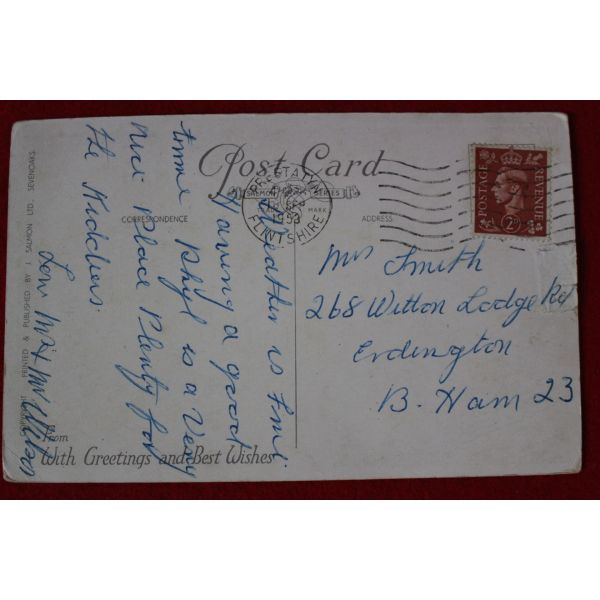 Post Card
SALMON SERIES
TRADE MARK
CORRESPONDENCE
ADDRESS.
PRESTATYN
FLINTSHIRE
1953
POSTAGE
REVENUE
2D
COPYRIGHT PRINTED & PUBLISHED BY J. SALMON LTD., SEVENOAKS.
Weather is Fine
Having a good
time Rhyl is a Very
Nice Place Plenty for
the Kiddies
Love
Mrs Smith
268 Witton Lodge Rd
Erdington
B. Ham 23
From
With Greetings and Best Wishes